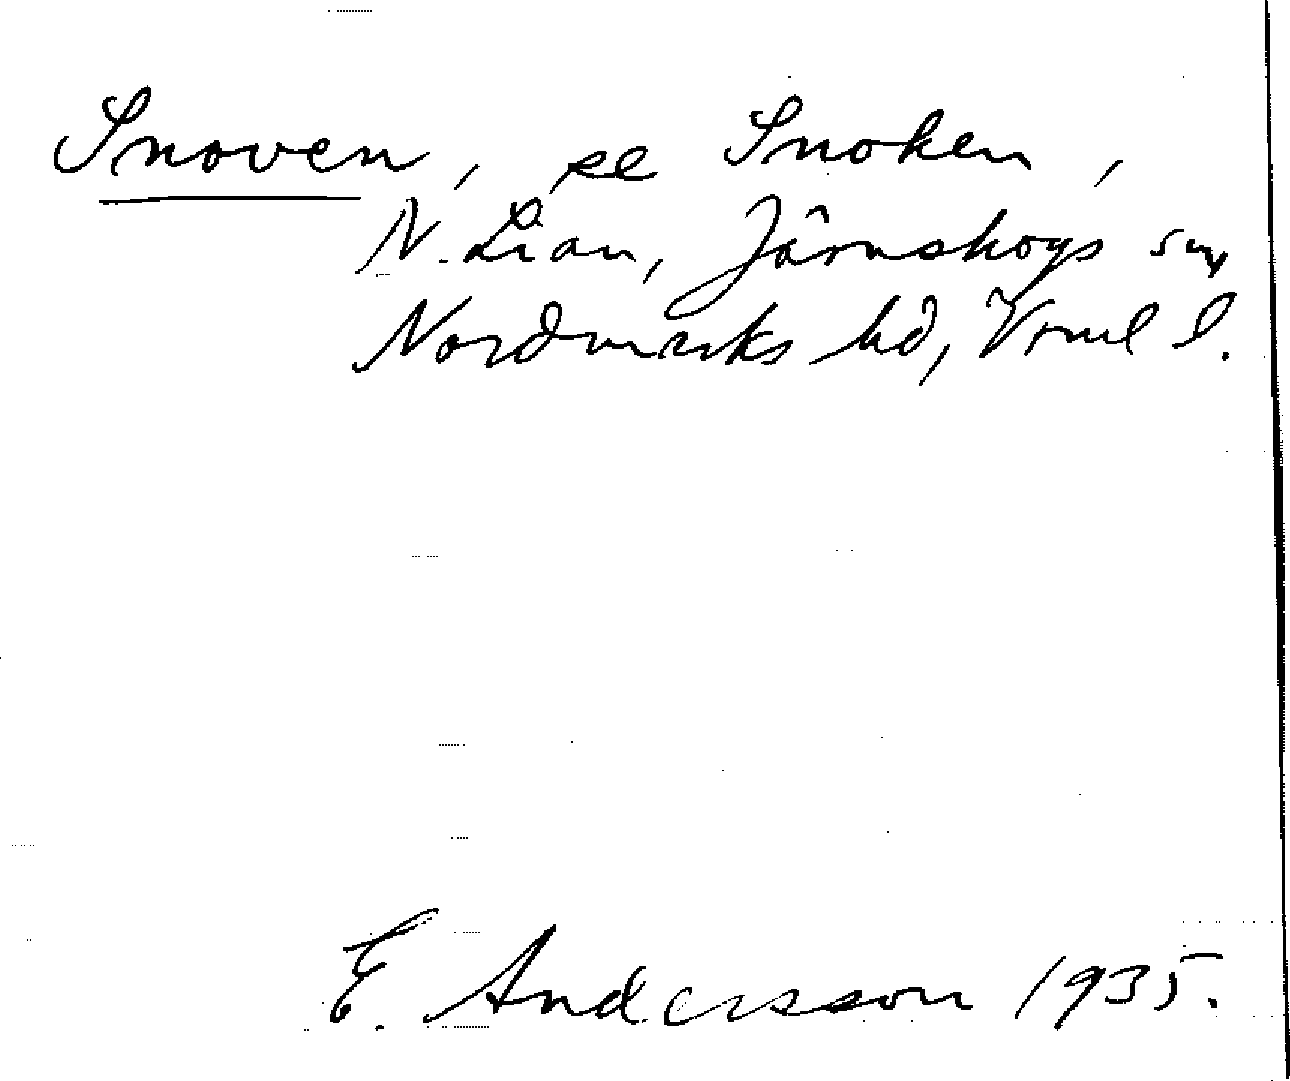 Snoven, se Snoken,
N. Lian, Järnskogs sn,
Nordmarks hd, Vrml l.
E. Andersson 1935.